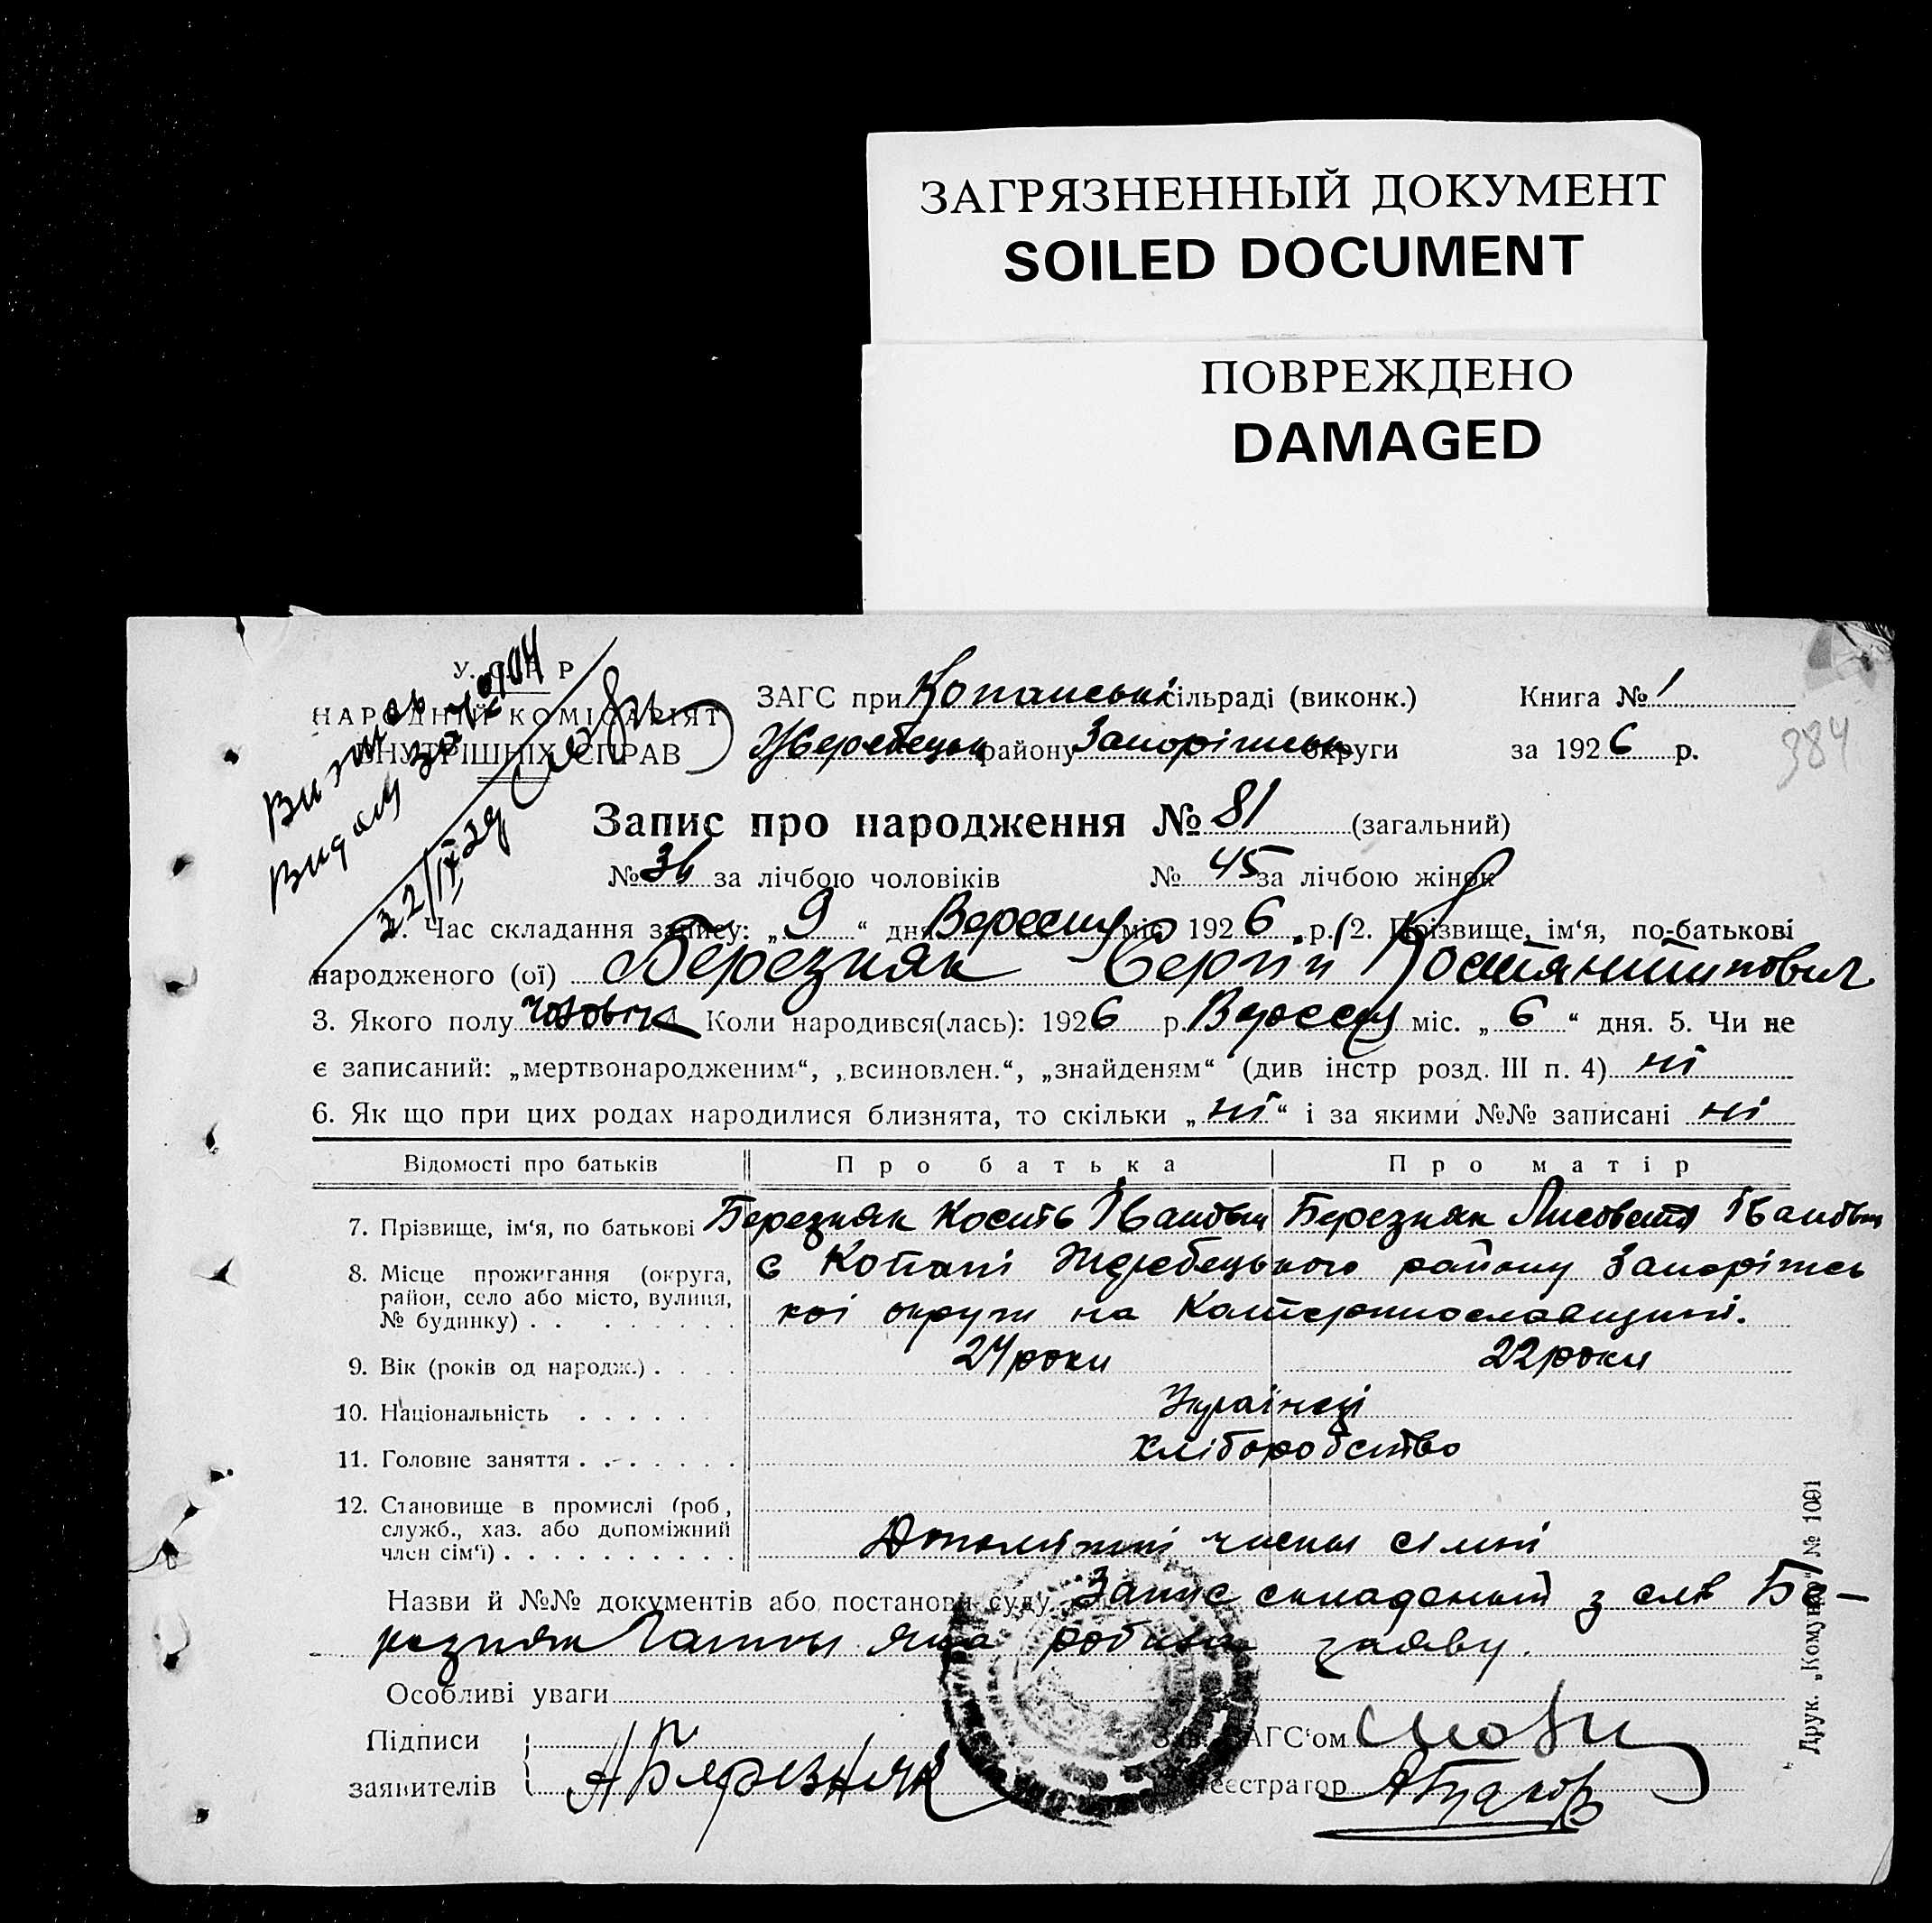 ЗАГРЯЗНЕННЫЙ ДОКУМЕНТ
SOILED DOCUMENT
ПОВРЕЖДЕНО
DAMAGED
У. С. Р. Р
НАРОДНІЙ КОМІСАРІЯТ
ВНУТРІШНІХ СПРАВ
ЗАГС при Копанській сільраді (виконк.) Книга № 1
Жеребецьк району Запоріжськ округи за 1926 р.
384
22/IX 29
Запис про народження № 81 (загальний)
№ 36 за лічбою чоловіків № 45 за лічбою жінок
1. Час складання запису: „ 9 “ дня Вересня міс 1926 р. 2. Прізвище, ім‘я, по-батькові
народженого (ої) Березняк Сергій Костянтинович
3. Якого полу чоловіч 4. Коли народився(лась): 1926 р. Вересня міс. „ 6 “ дня. 5. Чи не
є записаний: „мертвонародженим“, „всиновлен.“, „знайденям“ (див інстр розд. III п. 4) ні
6. Як що при цих родах народилися близнята, то скільки „ ні “ і за якими №№ записані ні
Відомості про батьків Про батька Про матір
7. Прізвище, ім‘я, по батькові Березняк Кость Іванович Березняк Лисовета Івановн
8. Місце прожигання (округа, район, село або місто, вулиця, № будинку) . . с Копані Жеребецького району Запоріжсь
кої округи на Катеринославщині.
9. Вік (років од народж.) . . . . 24 роки 22 роки
10. Національність . . . . . . Українці
11. Головне заняття . . . . . . . хліборобство
12. Становище в промислі (роб, служб., хаз. або допоміжний член сім‘ї) . . . . . . . . . . Допоміжні члены сімні
Назви й №№ документів або постанови суду Запис складений з слів Бе-
резняк Ганны яка робила заяву.
Особливі уваги
Підписи
заявителів А Березняк
Зав. ЗАГС‘ом
Реєстратор
Друк. „Комунар“ № 1001